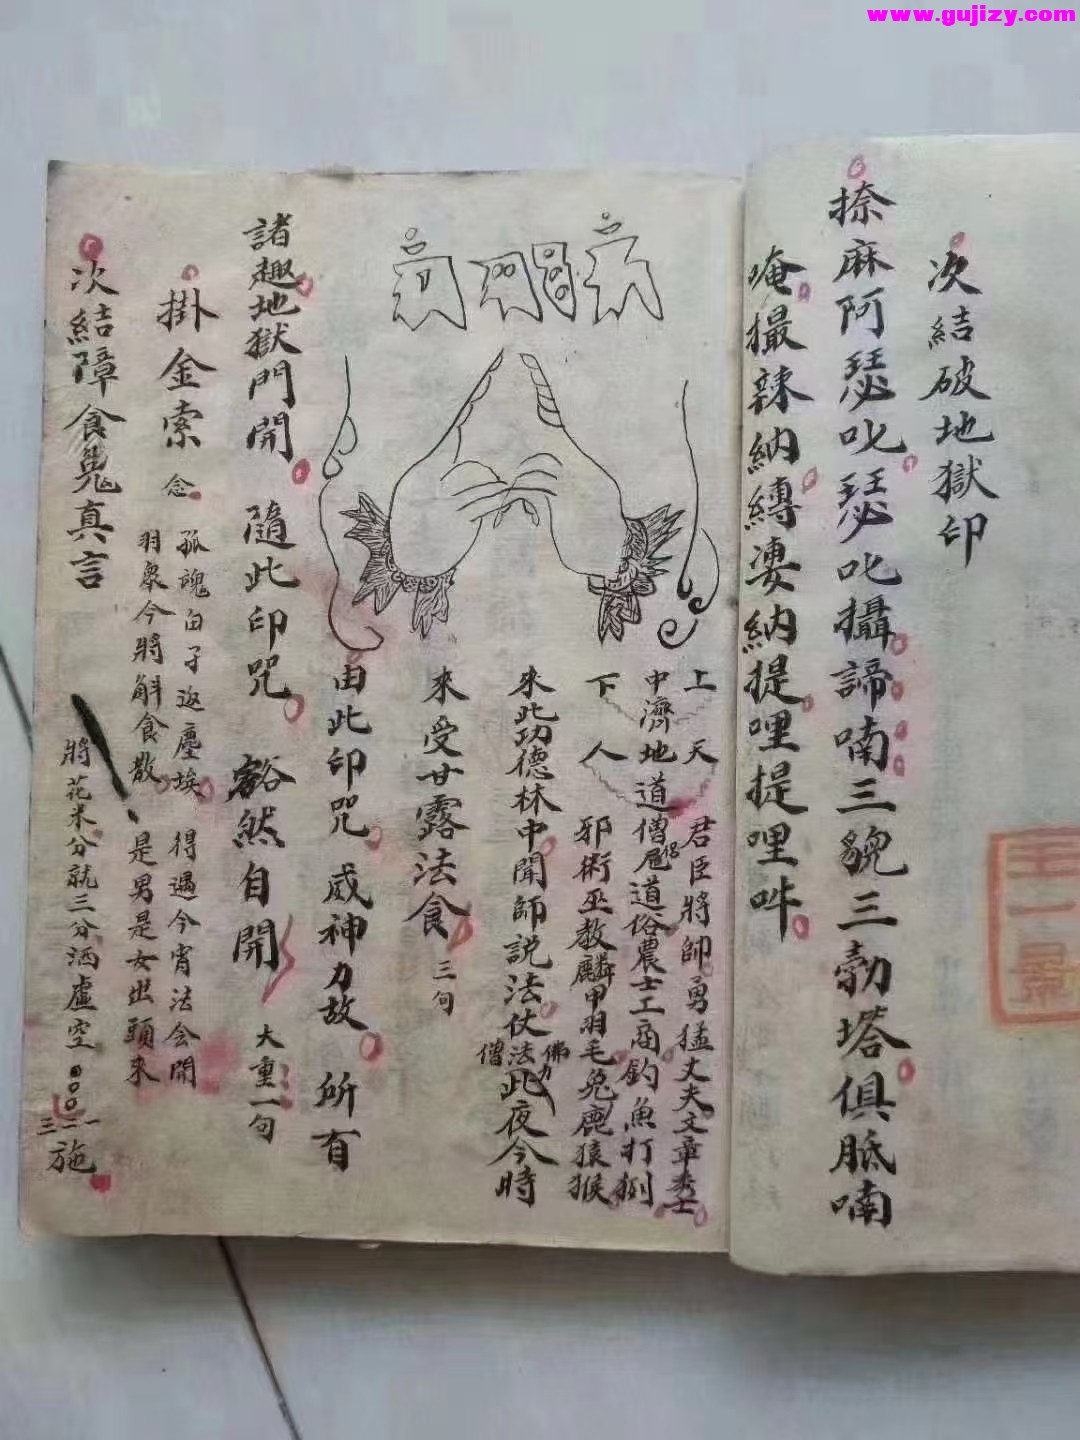 www.gujizy.com
次結破地獄印
捺麻阿瑟吒瑟吒攝諦喃三貌三勃塔俱胝喃
唵撮辣納縛婆納提哩提哩吽
上天君臣將帥勇猛丈夫文章秀士
中濟地道僧尼道俗農士工商釣魚打捌
侣
下人邪術巫教麟甲羽毛兔鹿猿猴
來此功德林中聞師說法仗此夜今時
佛力
法
僧
來受甘露法食三句
由此印咒威神力故所有
諸趣地獄門開隨此印咒豁然自開大重一句
掛金索念孤魂白子返塵埃得遇今宵法会開
羽衆今將斛食散是男是女出頭來
次結障食鬼真言將花米分就三分洒虛空
三二一
施